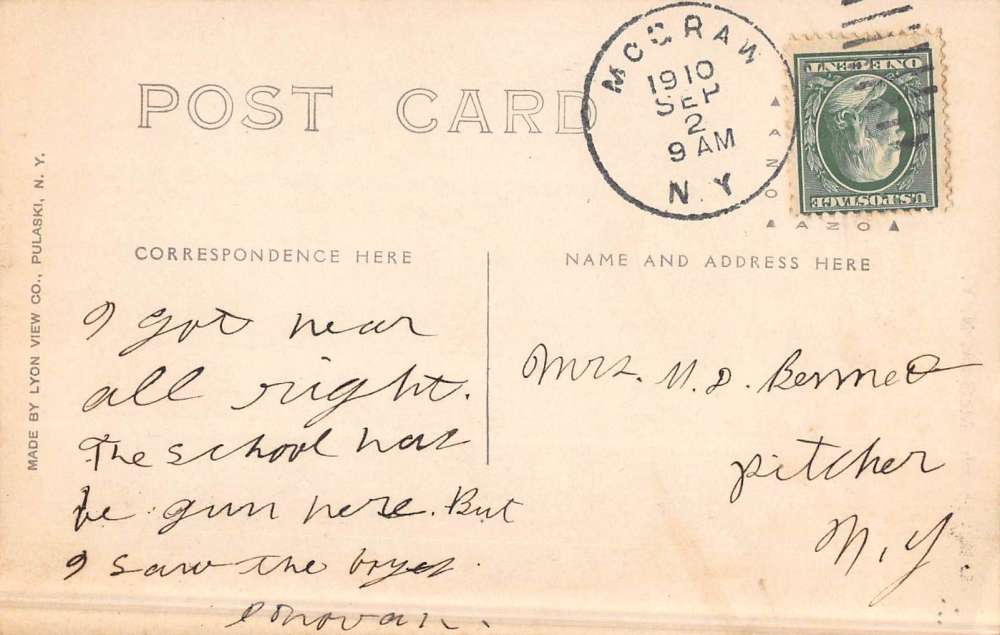 POST CARD
McGRAW
1910
SEP
2
9 AM
N.Y.
ONE CENT
U.S. POSTAGE
AZO
AZO
MADE BY LYON VIEW CO., PULASKI, N. Y.
CORRESPONDENCE HERE
I got near
all right.
The school has
be gun here. But
I saw the boyes.
Donovan.
NAME AND ADDRESS HERE
Mrs. M. D. Bennet
pitcher
N. Y.